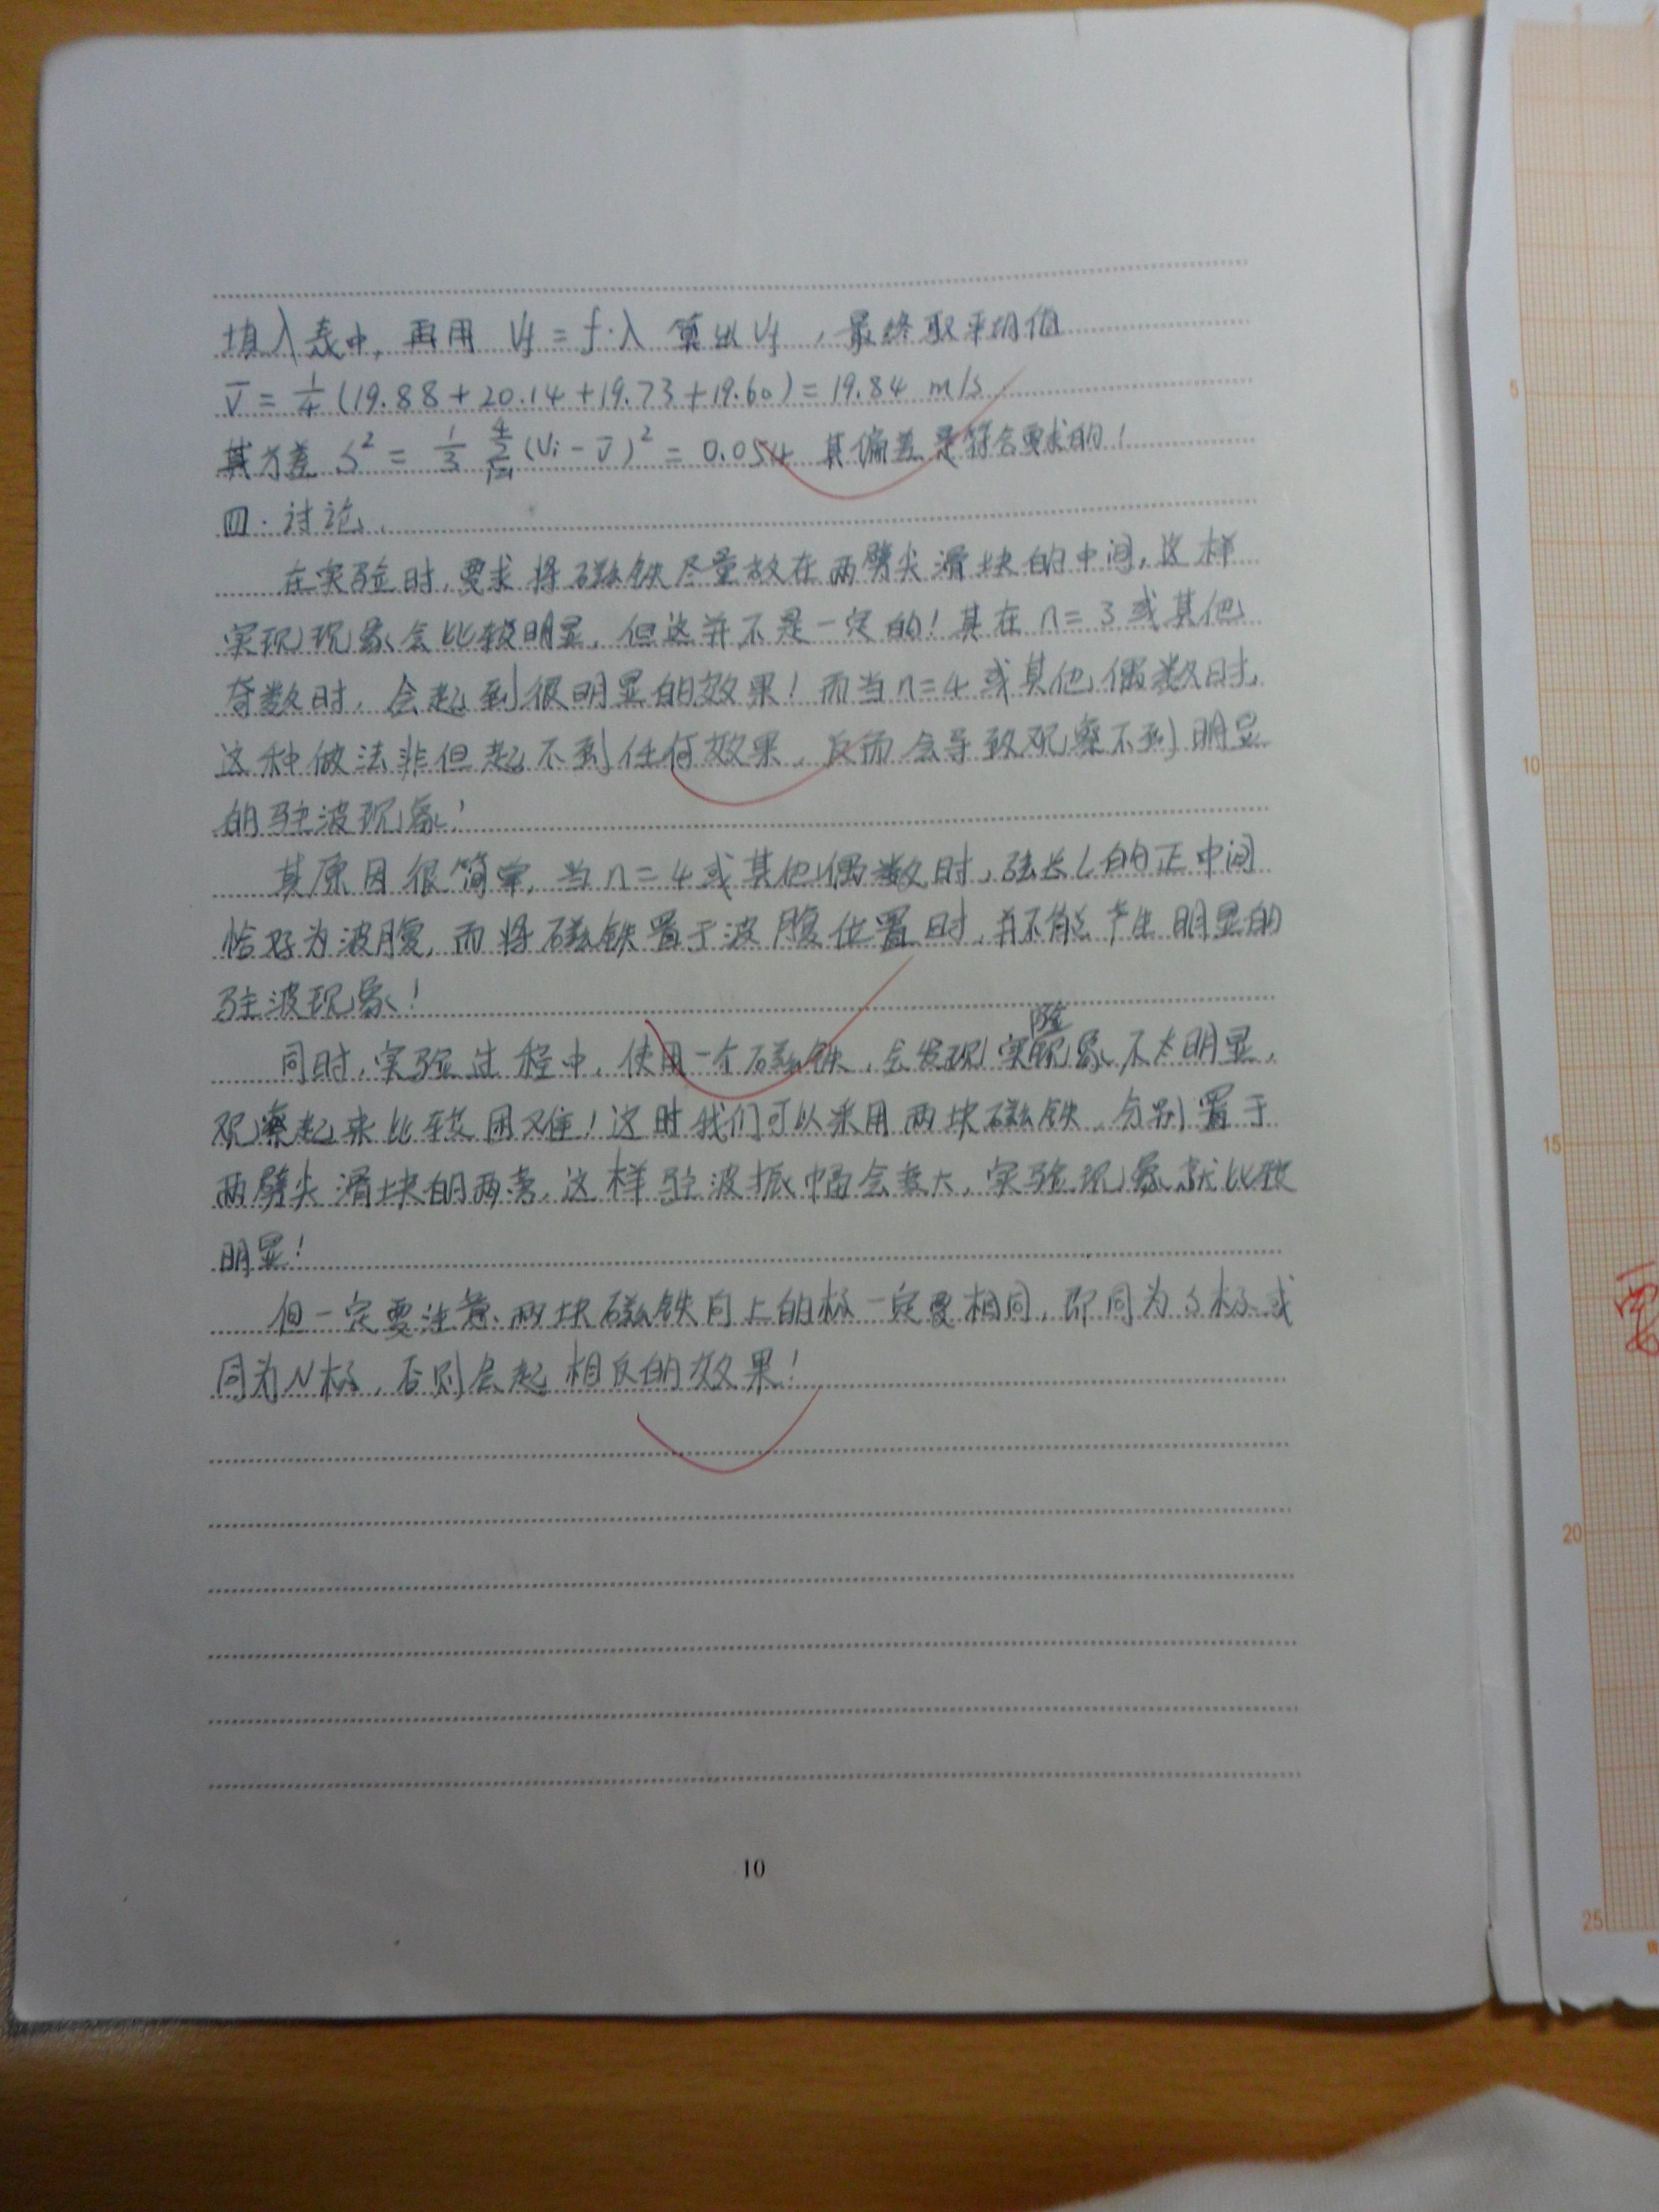 填入表中，再用 Vf = f·λ 算出Vf，最终取平均值
V̄ = 1/4 (19.88 + 20.14 + 19.73 + 19.60) = 19.84 m/s
其方差 S² = 1/3 Σ(Vi - V̄)² = 0.054 其偏差是符合要求的！
四. 讨论
在实验时，要求将磁铁尽量放在两劈尖滑块的中间，这样
实现现象会比较明显，但这并不是一定的！其在 n=3 或其他
奇数时，会起到很明显的效果！而当n=4或其他偶数时，
这种做法非但起不到任何效果，反而会导致观察不到明显
的驻波现象！
其原因很简单，当n=4或其他偶数时，弦长L的正中间
恰好为波腹，而将磁铁置于波腹位置时，并不能产生明显的
驻波现象！
同时，实验过程中，使用一个磁铁，会发现实验现象不太明显，
观察起来比较困难！这时我们可以采用两块磁铁，分别置于
两劈尖滑块的两旁，这样驻波振幅会变大，实验现象就比较
明显！
但一定要注意，两块磁铁向上的极一定要相同，即同为S极或
同为N极，否则会起相反的效果！
10
5
10
15
20
25